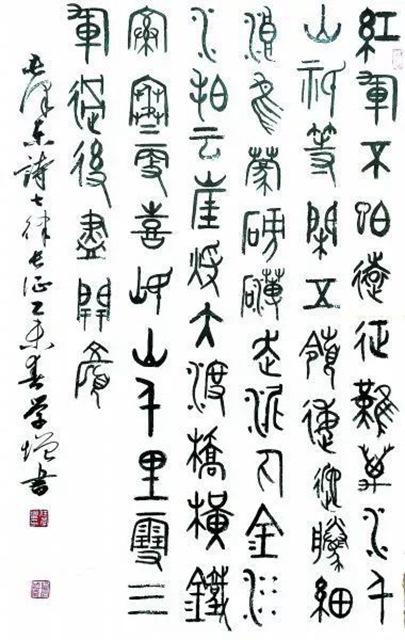 紅軍不怕遠征難萬水千
山祇等閑五嶺逶迤騰細
浪烏蒙磅礴走泥丸金沙
水拍云崖煖大渡橋橫鐵
索寒更喜岷山千里雪三
軍過後盡開顏
毛泽东詩七律长征乙未春学增書